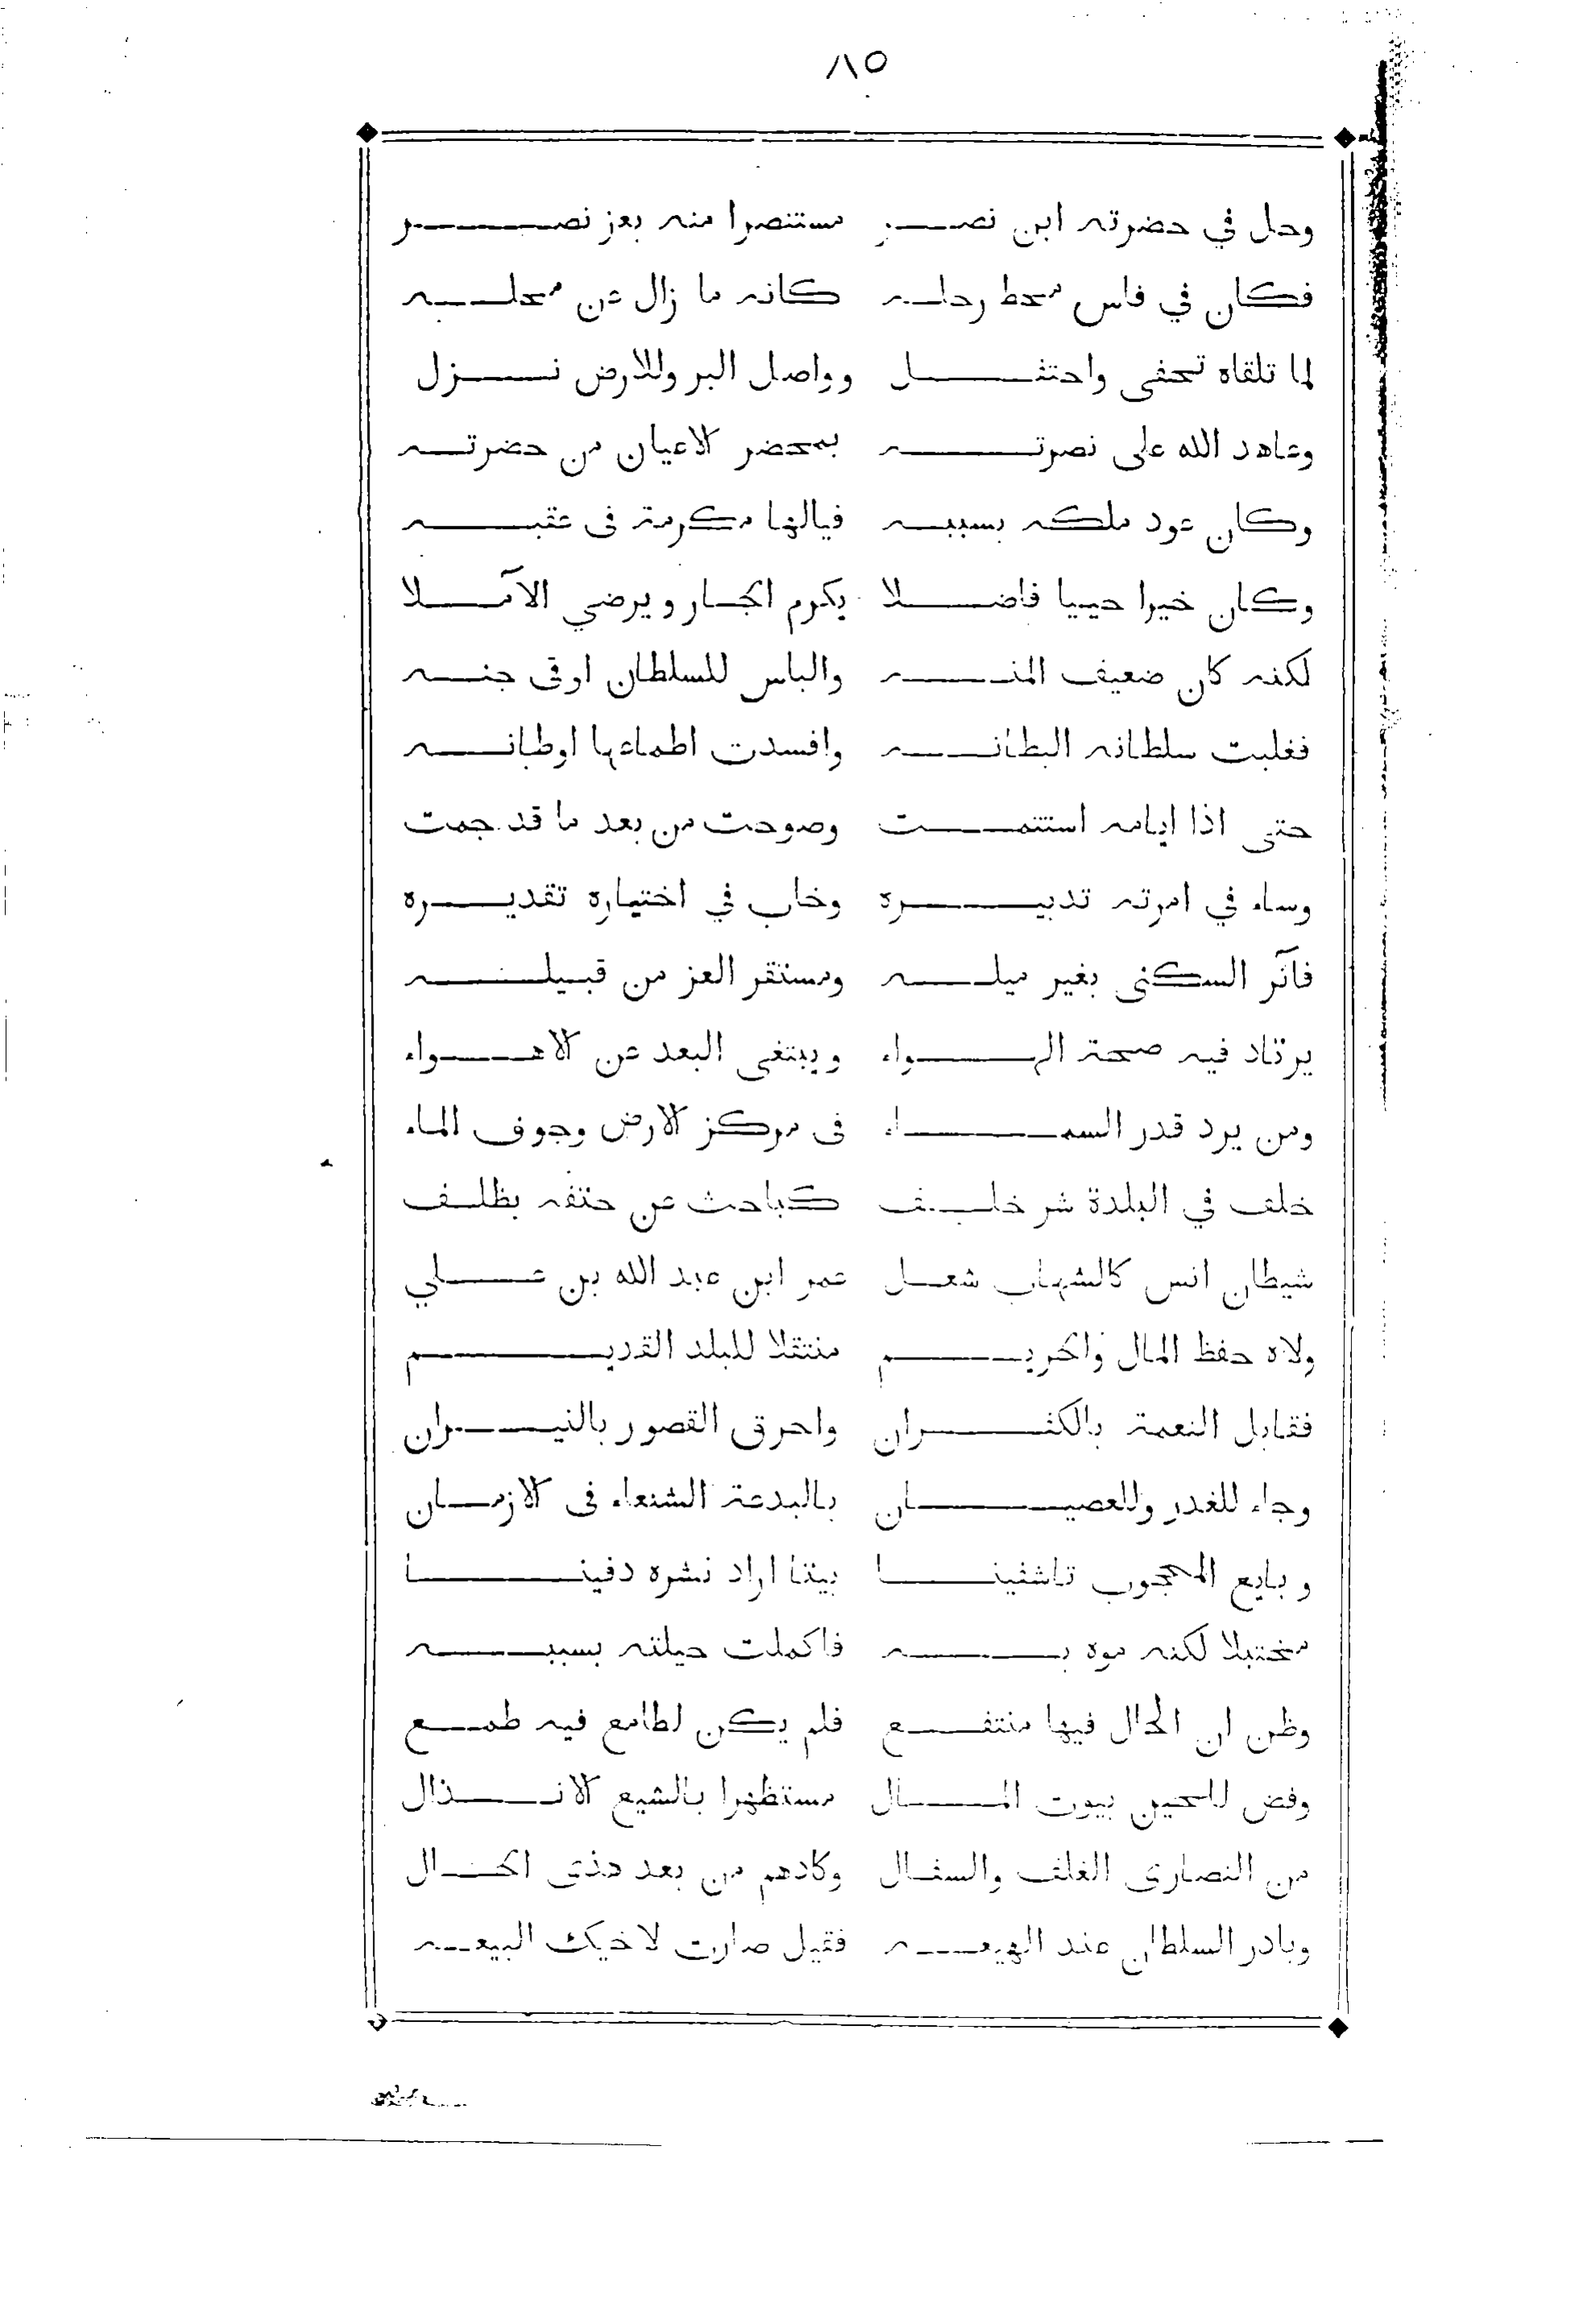 ٨١٥
وحل في حضرته ابن نصر مستنصرا منه بعز نصر
فكان في فاس محط رحله كانه ما زال عن محله
لما تلقاه تحفى واحتفل وواصل البر وللارض نزل
وعاهد الله على نصرته بمحضر الاعيان من حضرته
وكان عود ملكه بسببه فيالها مكرمة في عقبه
وكان خيرا حييا فاضلا يكرم الجار ويرضي الآملا
لكنه كان ضعيف المنه والباس للسلطان اوقى جنه
فغلبت سلطانه البطانه وافسدت اطماعها اوطانه
حتى اذا ايامه استتمت وصوحت من بعد ما قد جمت
وساء في امرته تدبيره وخاب في اختياره تقديره
فآثر السكنى بغير ميله ومستقر العز من قبيله
يرتاد فيه صحة الهواء ويبتغي البعد عن الاهواء
ومن يرد قدر السماء في مركز الارض وجوف الماء
خلف في البلدة شر خلف كباحث عن حتفه بظلف
شيطان انس كالشهاب شعل عمر ابن عبد الله بن علي
ولاه حفظ المال والحريم منتقلا للبلد القديم
فقابل النعمة بالكفران واحرق القصور بالنيران
وجاء للغدر وللعصيان بالبدعة الشنعاء في الازمان
وبايع المحجوب تاشفينا بيتا اراد نشره دفينا
مختبلا لكنه موه به فاكملت حيلته بسببه
وظن ان الحال فيها منتفع فلم يكن لطامع فيه طمع
وفض للحين بيوت المال مستظهرا بالشيع الانذال
من النصارى الغلف والسفال وكادهم من بعد هذى الحال
وبادر السلطان عند الهيعه فقيل صارت لاخيك البيعه